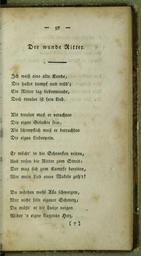 — 97 —
Der wunde Ritter.
Ich weiß eine alte Kunde,
Die hallet dumpf und trüb:
Ein Ritter liegt liebeswunde,
Doch treulos ist sein Lieb.
Als treulos muß er verachten
Die eigne Herzliebste sein,
Als schimpflich muß er betrachten
Die eigne Liebespein.
Er möcht' in die Schranken reiten,
Und rufen die Ritter zum Streit:
Der mag sich zum Kampfe bereiten,
Wer mein Lieb eines Makels zeiht!
Da würden wohl Alle schweigen,
Nur nicht sein eigener Schmerz;
Da müßt' er die Lanze neigen
Wider's eigne klagende Herz.